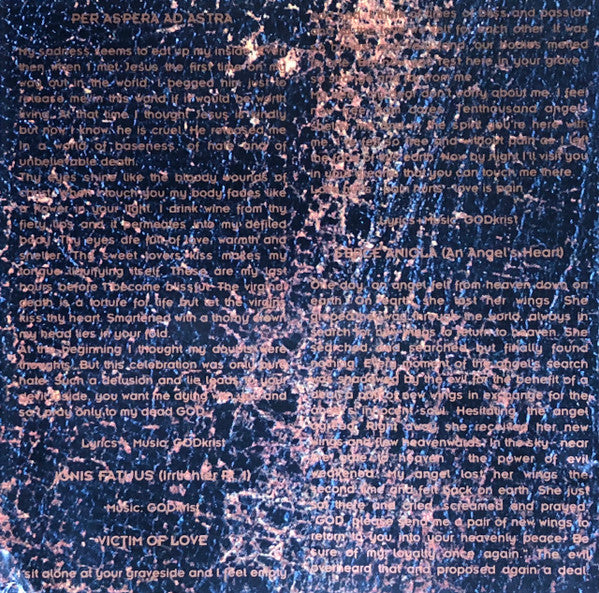 PER ASPERA AD ASTRA
My sadness seems to eat up my inside. Even
then when I met Jesus the first time on my
way out in the world, I begged him just to
release me in this world, if it would be worth
living. At that time I thought Jesus is kindly
but now I know, he is cruel. He released me
in a world of baseness, of hate and of
unbelievable death.
Thy eyes shine like the bloody wounds of
christ, when I touch you my body fades like
a flower in your light. I drink wine from thy
fiery lips and it permeates into my defiled
body. Thy eyes are full of love, warmth and
shelter. The sweet lovers kiss makes my
tongue terrifying itself. These are my last
hours before I become blissful. The virginal
death is a torture for life, but let the virgin
kiss thy heart. Smartened with a thorny crown
my head lies in your fold.
At the beginning I thought my doubts were
thoughts! But this celebration was only pure
hate. Such a delusion and lie leads to your
devil's side, you want me dying and
so I pray only to my dead GOD.
Lyrics & Music: GODkrist
IGNIS FATUUS (Irrlichter Pt. 1)
Music: GODkrist
VICTIM OF LOVE
I sit alone at your graveside and I feel empty
of bliss and passion
for each other. It was
our bodies melted
rest here in your grave,
so from me.
don't worry about me. I feel
Tenthousand angels
in the spirit you're here with
me. free and without pain as
earth. Now by night I'll visit you
in your dreams that you can touch me there.
pain hurts, love is pain.
Lyrics & Music: GODkrist
SERCE ANIOLA (An Angel's Heart)
One day an angel fell from heaven down on
earth. On earth she lost her wings. She
through the world, always in
search for new wings to return to heaven. She
searched and searched, but finally found
nothing. Every moment of the angel's search
was shadowed by the evil. For the benefit of a
deal, a pair of new wings in exchange for the
angel's innocent soul. Hesitating, the angel
agreed. Right away she received her new
wings and flew heavenwards. In the sky - near
the gate to heaven - the power of evil
weakened. My angel lost her wings the
second time and fell back on earth. She just
sat there and cried, screamed and prayed,
"GOD, please send me a pair of new wings to
return to you, into your heavenly peace. Be
sure of my loyalty once again." The evil
overheard that and proposed again a deal: